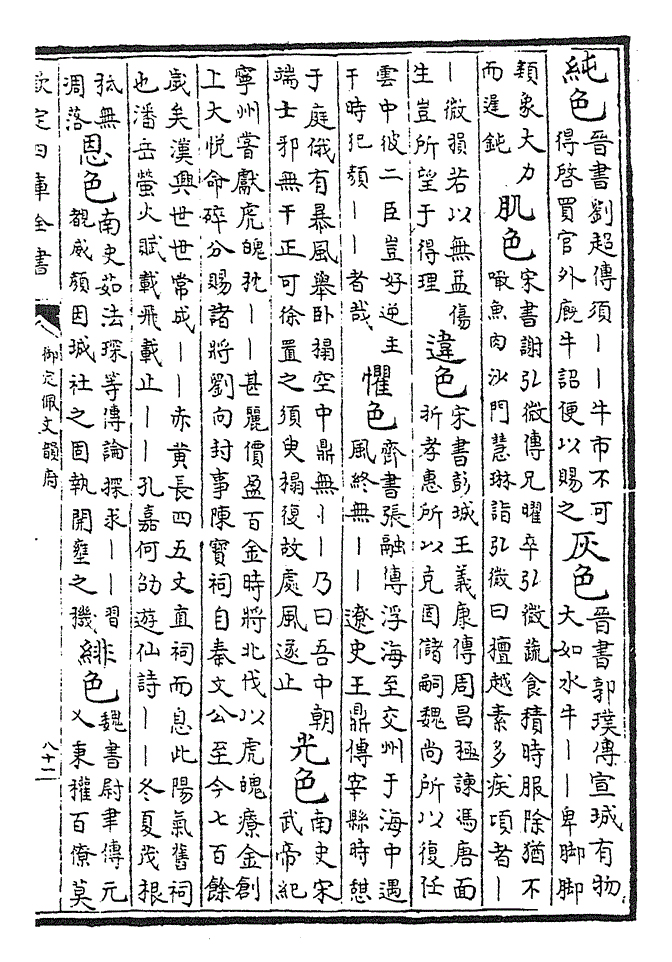 純色晉書劉超傳須——牛市不可得啓買官外廐牛詔便以賜之灰色晉書郭璞傳宣城有物大如水牛——卑脚脚
類象大力而遲鈍肌色宋書謝弘微傳兄曜卒弘微蔬食積時服除猶不噉魚肉沙門慧琳詣弘微曰檀越素多疾頃者—
—微損若以無益傷生豈所望于得理違色宋書彭城王義康傳周昌極諫馮唐面折孝惠所以克固儲嗣魏尚所以復任
雲中彼二臣豈好逆主干時犯顔——者哉懼色齊書張融傳浮海至交州于海中遇風終無——遼史王鼎傳宰縣時憇
于庭俄有暴風舉卧榻空中鼎無——乃曰吾中朝端士邪無干正可徐置之須臾榻復故處風遂止光色南史宋武帝紀
寧州嘗獻虎魄枕——甚麗價盈百金時將北伐以虎魄療金創上大悅命碎分賜諸將劉向封事陳寶祠自秦文公至今七百餘
歲矣漢興世世常成——赤黄長四五丈直祠而息此陽氣舊祠也潘岳螢火賦載飛載止——孔嘉何劭遊仙詩——冬夏茂根
柢無凋落恩色南史茹法琛等傳論探求——習覩威顔因城社之固執開壅之機緋色魏書尉聿傳元乂秉權百僚莫
欽定四庫全書
御定佩文韻府
八十一